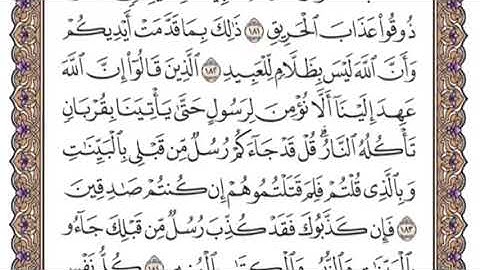 ذُوقُوا۟ عَذَابَ ٱلْحَرِيقِ ١٨١ ذَٰلِكَ بِمَا قَدَّمَتْ أَيْدِيكُمْ
وَأَنَّ ٱللَّهَ لَيْسَ بِظَلَّامٍ لِّلْعَبِيدِ ١٨٢ ٱلَّذِينَ قَالُوٓا۟ إِنَّ ٱللَّهَ
عَهِدَ إِلَيْنَآ أَلَّا نُؤْمِنَ لِرَسُولٍ حَتَّىٰ يَأْتِيَنَا بِقُرْبَانٍ
تَأْكُلُهُ ٱلنَّارُ ۗ قُلْ قَدْ جَآءَكُمْ رُسُلٌ مِّن قَبْلِى بِٱلْبَيِّنَٰتِ
وَبِٱلَّذِى قُلْتُمْ فَلِمَ قَتَلْتُمُوهُمْ إِن كُنتُمْ صَٰدِقِينَ
١٨٣ فَإِن كَذَّبُوكَ فَقَدْ كُذِّبَ رُسُلٌ مِّن قَبْلِكَ جَآءُو
بِٱلْبَيِّنَٰتِ وَٱلزُّبُرِ وَٱلْكِتَٰبِ ٱلْمُنِيرِ ١٨٤ كُلُّ نَفْسٍ